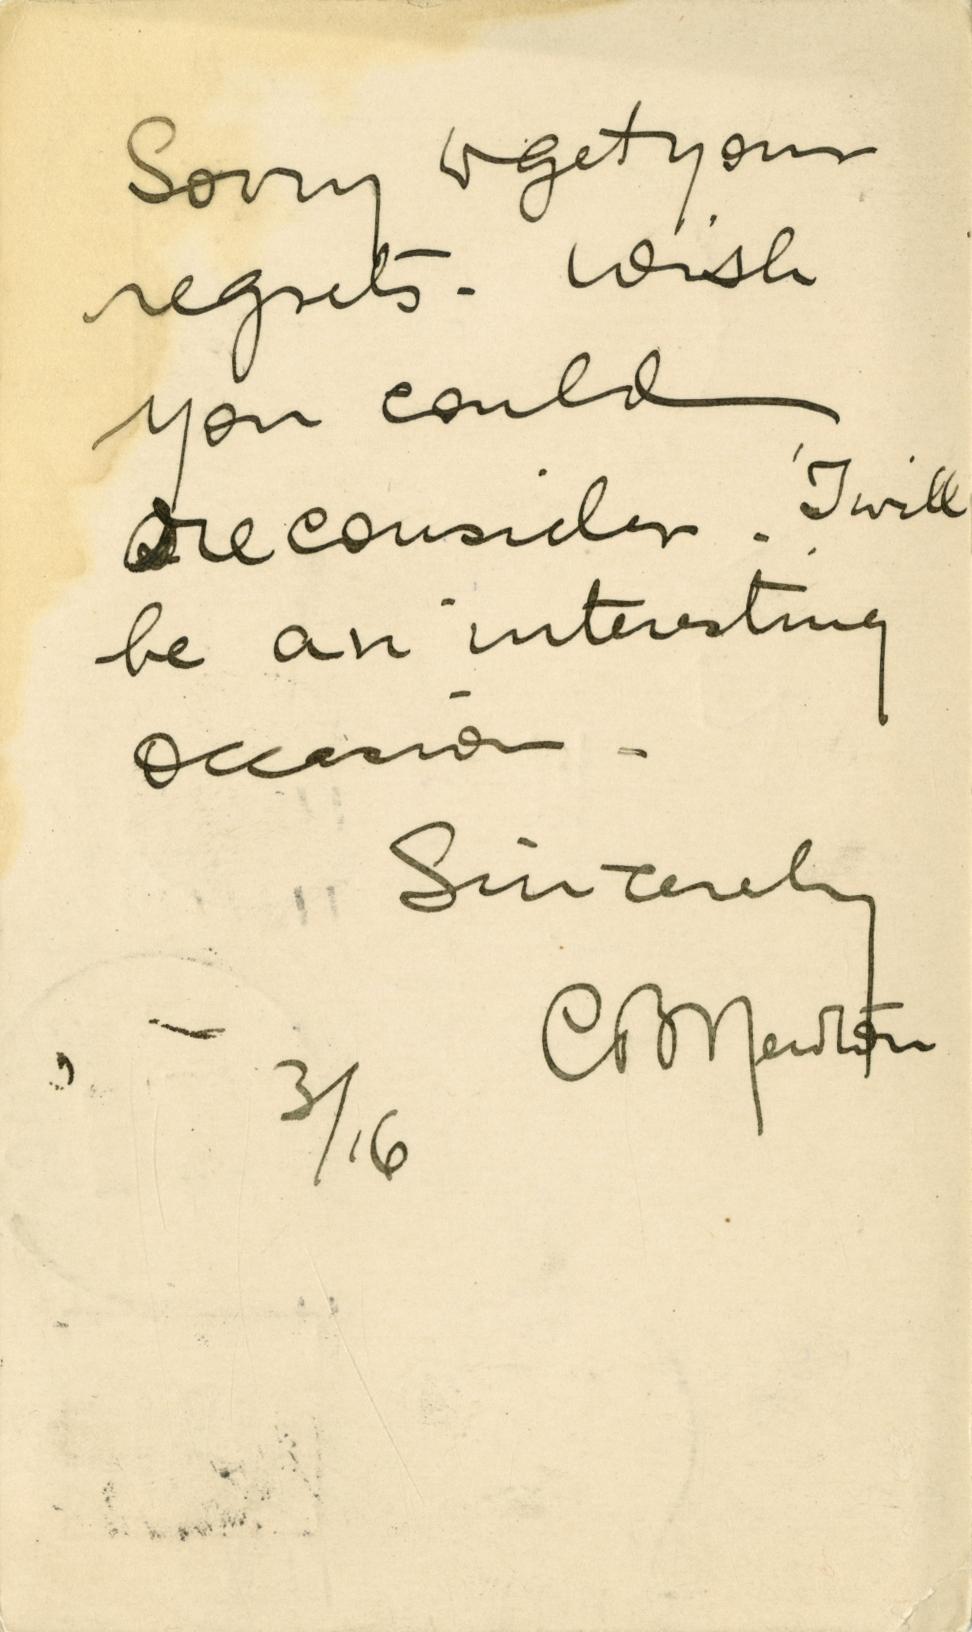 Sorry to get your
regrets - Wish
you could
reconsider. 'Twill
be an interesting
occasion -
Sincerely
C B Newton
3/16